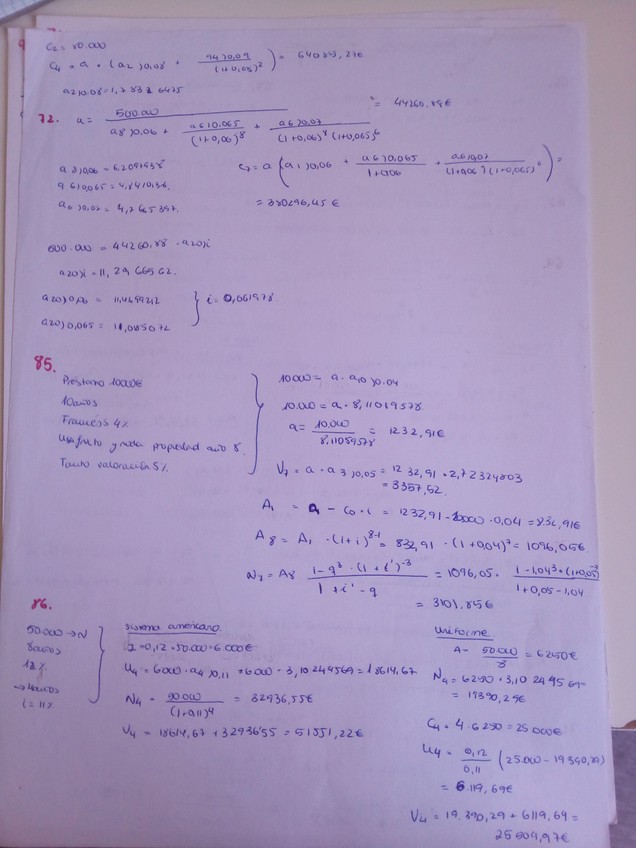 C2 = 80.000
C4 = a · (a2⌉0,08 + a4⌉0,09 / (1+0,08)²) = 640
a2⌉0.08 = 1,7832 6475
72. a = 500.000 / (a8⌉0,06 + a6⌉0.065 / (1+0,06)⁸ + a6⌉0,07 / (1+0,06)⁸ (1+0,065)⁶) = 44260.88€
a8⌉0,06 = 6,2097938
a6⌉0,065 = 4,8410136.
a6⌉0,07 = 4,7665397.
C7 = a (a1⌉0,06 + a6⌉0,065 / 1+0,06 + a6⌉0,07 / (1+0,06)(1+0,065)⁶) =
= 320296,45 €
500.000 = 44260,88 · a20⌉i
a20⌉i = 11, 29 66562.
a20⌉0,06 = 11,4699212
a20⌉0,065 = 11,0185072
i = 0,061978
85.
Préstamo 10000€
10 años
Francés 4%
Usufruto y nuda propiedad año 8.
Tanto valoración 5%
10.000 = a · a10⌉0.04
10.000 = a · 8,11089578
a = 10.000 / 8,11089578 = 1232,91€
V7 = a · a3⌉0,05 = 1232,91 · 2,72324803
= 3357,52.
A1 = a - C0 · i = 1232,91 - 10000 · 0,04 = 832,91€
A8 = A1 · (1+i)⁸⁻¹ = 832,91 · (1+0,04)⁷ = 1096,05€
N7 = A8 (1-q³ · (1+i')⁻³) / (1+i'-q) = 1096,05 · (1-1,04³ · (1+0,05)⁻³) / (1+0,05-1,04)
= 3101,85€
86.
50.000 → N
8 años
12%
→ 4 años
i = 11%
Sistema americano.
I = 0,12 · 50.000 = 6.000€
U4 = 6000 · a4⌉0,11 = 6000 · 3,10244569 = 18614,67
N4 = 50.000 / (1+0,11)⁴ = 32936,55€
V4 = 18614,67 + 32936,55 = 51551,22€
Uniforme
A = 50.000 / 8 = 6250€
N4 = 6250 · 3,10244569 =
= 19390,29€
C4 = 4 · 6250 = 25.000€
U4 = 0,12 / 0,11 (25.000 - 19390,29)
= 6.119,69€
V4 = 19.390,29 + 6119,69 =
25509,97€